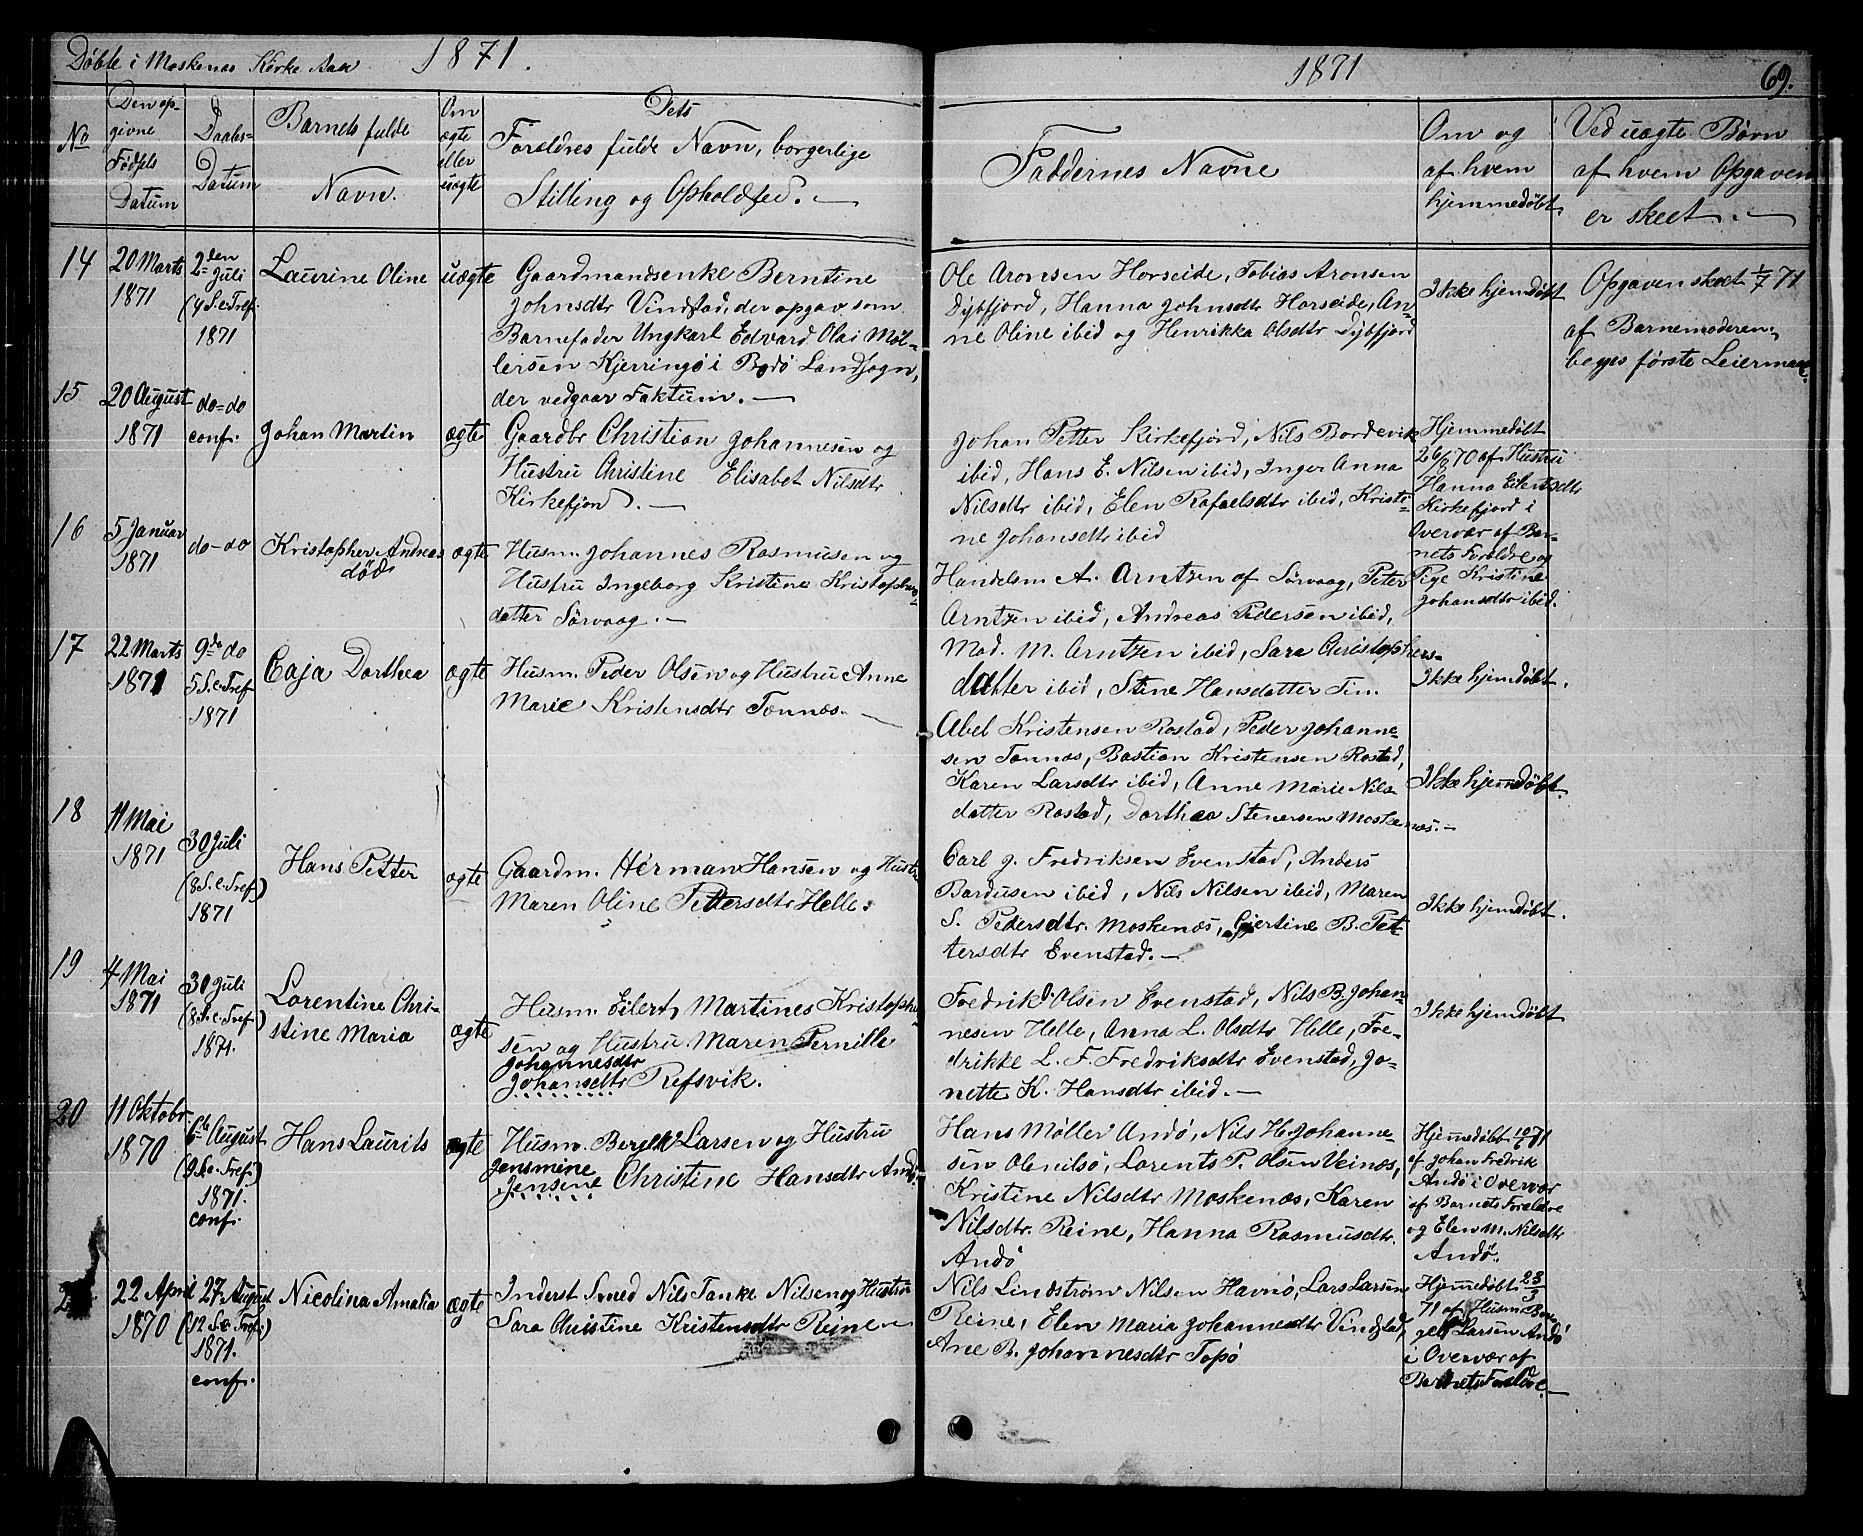 Døbte i Moskenæs Kirke Aar 1871.
No
Den opgivne Fødsels Datum
Daabs-Datum
Barnets fulde Navn.
Om ægte eller uægte
Dets Forældres fulde Navn, borgerlige Stilling og Opholdsted.
14
20 Marts
1871
2den Juli
(4 S. e. Tref.
1871
Laurine Oline
uægte
Gaardmandsenke Berntine
Johnsdtr Vindstad, der opgav som
Barnefader Ungkarl Edvard Olai Møl-
lersen Kjerringø i Bodø Landsogn,
der vedgaar Faktum. —
15
20 August
1871
do=do
conf.
Johan Martin
ægte
Gaardbr Christian Johannesen og
Hustru Christine Elisabet Nilsdtr
Kirkefjord. —
16
5 Januar
1871
do-do
Kristopher Andreas
død
ægte
Husm. Johannes Rasmusen og
Hustru Ingeborg Kristine Kristophers-
datter Sørvaag. —
17
22 Marts
1871
9de do
5 S. e. Tref
1871
Caja Dorthea
ægte
Husm. Peder Olsen og Hustru Anne
Marie Kristensdtr Tonnæs. —
18
11 Mai
1871
30 Juli
(8 S. e. Tref)
1871
Hans Petter
ægte
Gaardm. Herman Hansen og Hustr
Maren Oline Pettersdtr Helle.
19
4 Mai
1871
30 Juli
(8 S. e. Tref)
1871.
Lorentine Chri-
stine Maria
ægte
Husm. Eilert Martines Kristopher-
sen og Hustru Maren Pernille
Johannesdtr
Johansdtr Refsvik.
20
11 Oktobr
1870
6te August
(9 S. e. Tref.)
1871.
conf.
Hans Laurits
ægte
Husm. Bergel Larsen og Hustru
Jensmine
Jensine Christine Hansdtr Andø.
22 April
1870
27 August
(12 S. e. Tref.)
1871.
conf.
Nicolina Amalia
ægte
Inderst Smed Nils Tanke Nilsen og Hustru
Sara Christine Kristensdtr Reine —
1871
69.
Faddernes Navne
Om og af hvem hjemmedøbt.
Ved uægte Børn af hvem Opgaven er skeet. —
Ole Aronsen Horseide, Tobias Aronsen
Dybfjord, Hanna Johnsdtr Horseide, An-
ne Oline ibid og Henrikka Olsdtr Dybfjord
Ikke hjemdøbt
Opgaven skeet 1/7 71
af Barnemoderen,
beggs første Leiermaal.
Johan Petter Kirkefjord, Nils Bordevik
ibid, Hans E. Nilsen ibid, Inger Anna
Nilsdtr ibid, Elen Rafaelsdtr ibid, Kristi-
ne Johansdtr ibid
Hjemmedøbt
26/8 70 af Hustru
Hanna Eilertsdtr
Kirkefjord i
Overvær af Bar-
nets Forældre og
Pige Kristine
Johansdtr ibid.
Handelsm A. Arntzen af Sørvaag, Peter
Arntzen ibid, Andreas Pedersen ibid,
Mad. M. Arntzen ibid, Sara Christophers-
datter ibid, Stine Hansdatter Tin.
Ikke hjemdøbt.
Abel Kristensen Rostad, Peder Johanne-
sen Tonnæs, Bastian Kristensen Rostad,
Karen Larsdtr ibid, Anne Marie Nils-
datter Rostad, Dorthea Stenersen Moskenæs. —
Ikke hjemdøbt.
Carl J. Fredriksen Evenstad, Anders
Bardusen ibid, Nils Nilsen ibid, Maren
S. Pedersdtr. Moskenæs, Gjertine B. Pet-
tersdtr Evenstad. —
Ikke hjemdøbt.
Fredrik Olsen Evenstad, Nils B. Johan-
nesen Helle, Anna L. Olsdtr Helle, Fre-
drikke L. F. Fredriksdtr Evenstad, Jo-
nette K. Hansdtr ibid. —
Ikke hjemdøbt
Hans Møller Andø, Nils H. Johanne-
sen Olenilsø, Lorents P. Olsen Veinæs,
Kristine Nilsdtr Moskenæs, Karen
Nilsdtr. Reine, Hanna Rasmusdtr.
Andø
Hjemmedøbt 10/6 71
af Johan Fredrik
Andø i Overvær
af Barnets Forældre
og Elen M. Nilsdtr
Andø.
Nils Lindstrøm Nilsen Havnø, Lars Larsen
Reine, Elen Maria Johannesdtr Vindstad,
Ane B. Johannesdtr Topø
Hjemmedøbt 23/3
71 af Husm. Ber-
gel Larsen Andø
i Overvær af
Barnets Forældre. —